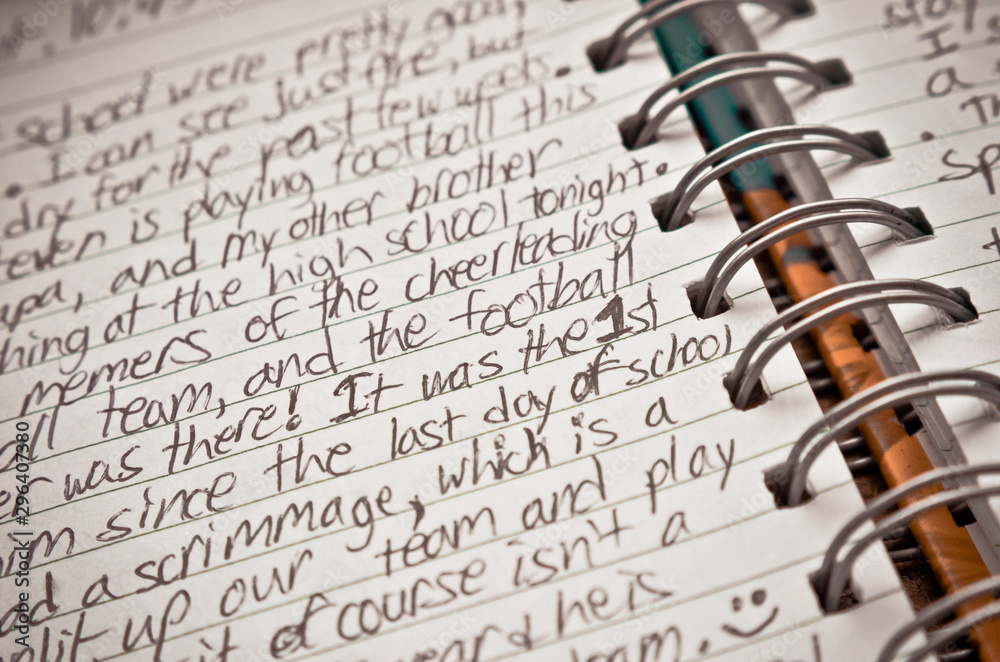 school were pretty good,
. I can see just fine, but
dry for the past few weeks.
even is playing football this
apa, and my other brother
hing at the high school tonight.
memers of the cheerleading
all team, and the football
was there! It was the 1st
im since the last day of school
d a scrimmage, which is a
lit up our team and play
it of course isn't a
year & he is
team. :)
stay
I
a
. Th
sp
Adobe Stock | #296407380